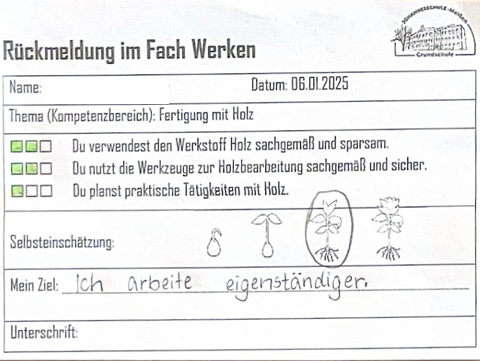 JOHANNESSCHULE-Meißen
Grundschule
Rückmeldung im Fach Werken
Name: Datum: 06.01.2025
Thema (Kompetenzbereich): Fertigung mit Holz
Du verwendest den Werkstoff Holz sachgemäß und sparsam.
Du nutzt die Werkzeuge zur Holzbearbeitung sachgemäß und sicher.
Du planst praktische Tätigkeiten mit Holz.
Selbsteinschätzung:
Mein Ziel: Ich arbeite eigenständiger.
Unterschrift: